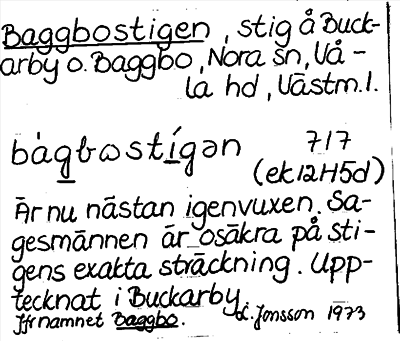 Baggbostigen, stig å Buck-
arby o. Baggbo, Nora sn, Vå-
la hd, Västm.l.
bàgbωstígən 717
(ek 12H5d)
Är nu nästan igenvuxen. Sa-
gesmännen är osäkra på sti-
gens exakta sträckning. Upp-
tecknat i Buckarby.
Jfr namnet Baggbo. L. Jonsson 1973